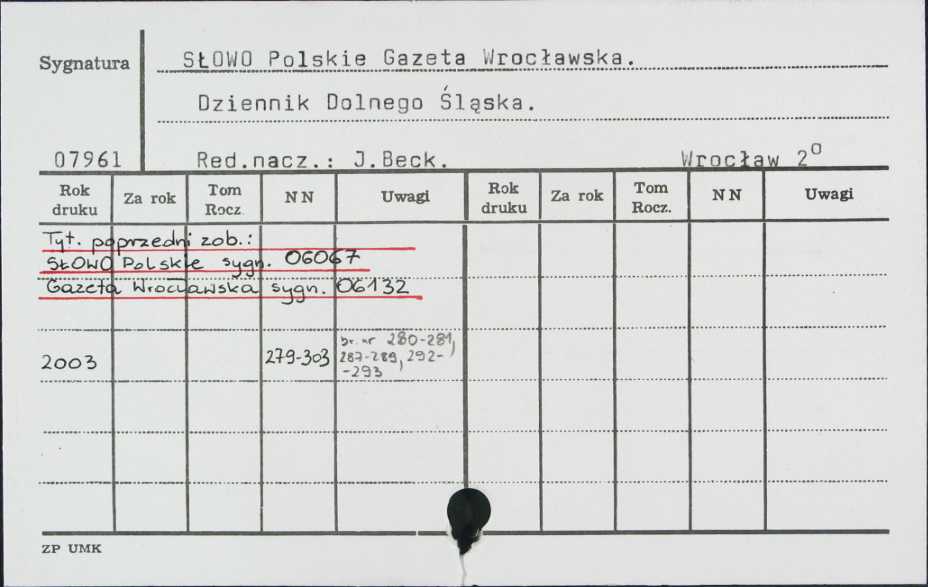 Sygnatura
SŁOWO Polskie Gazeta Wrocławska.
Dziennik Dolnego Śląska.
07961 Red.nacz.: J.Beck. Wrocław 2º
Rok druku Za rok Tom Rocz. N N Uwagi Rok druku Za rok Tom Rocz. N N Uwagi
Tyt. poprzedni zob.:
SŁOWO Polskie sygn. 06067
Gazeta Wrocławska sygn. 06132
2003 279-303 br. nr 280-281,
287-289, 292-
-293
ZP UMK